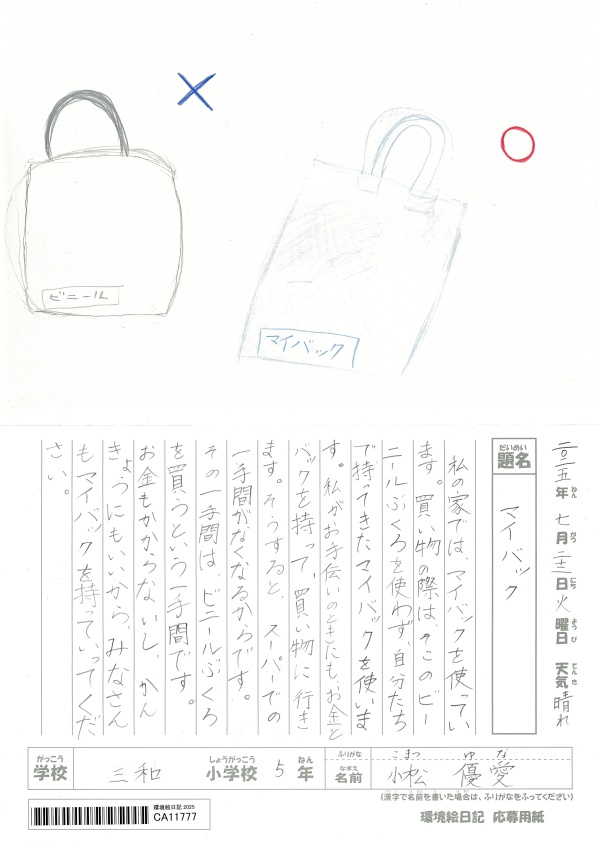 ビニール
マイバック
二〇二五年 七月 二十二日 火曜日 天気 晴れ
ねん がつ にち ようび てんき
だいめい
題名 マイバック
私の家では、マイバックを使ってい
ます。買い物の際は、そこのビー
ニールぶくろを使わず、自分たち
で持ってきたマイバックを使いま
す。私がお手伝いのときにも、お金と
バックを持って、買い物に行き
ます。そうすると、スーパーでの
一手間がなくなるからです。
その一手間は、ビニールぶくろ
を買うという一手間です。
お金もかからないし、かん
きょうにもいいから、みなさん
もマイバックを持っていってくだ
さい。
がっこう しょうがっこう ねん ふりがな こまつ ゆな
学校 三和 小学校 5年 なまえ 名前 小松 優愛
(漢字で名前を書いた場合は、ふりがなをふってください)
環境絵日記 2025
CA11777
環境絵日記 応募用紙